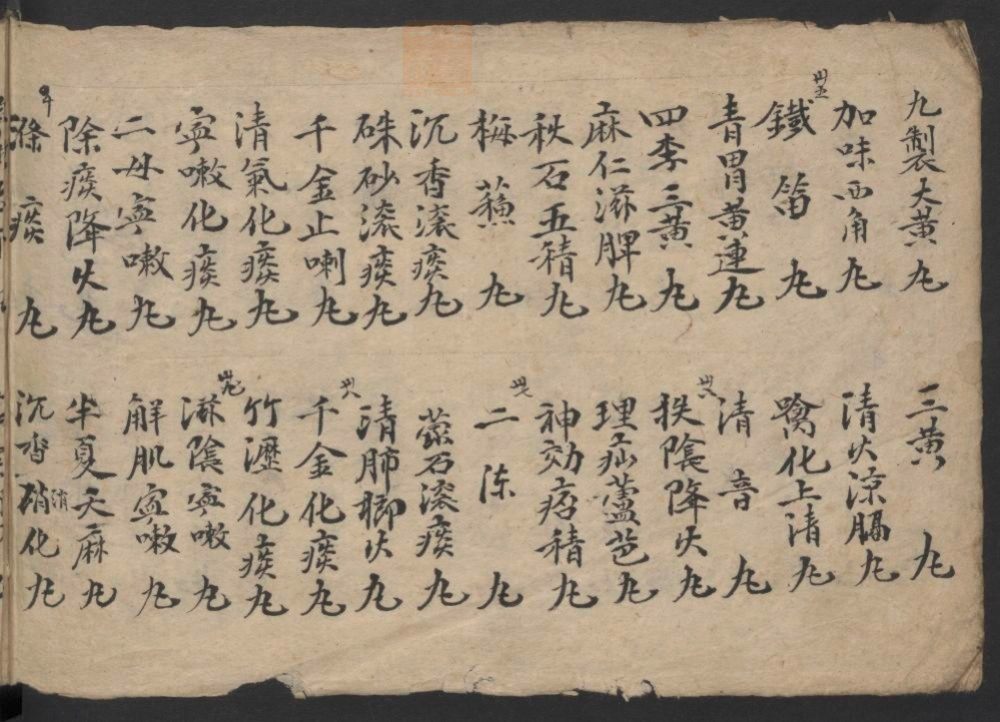 九製大黃丸
加味西角丸
鐵笛丸
青胃黃連丸
四季三黃丸
麻仁滋脾丸
秋石五積丸
梅蘓丸
沉香滚痰丸
硃砂滚痰丸
千金止喇丸
清氣化痰丸
寧嗽化痰丸
二母寧嗽丸
除痰降火丸
滌痰丸
三黃丸
清火涼膈丸
噙化上清丸
清音丸
秩陰降火丸
理疝蘆芭丸
神効痞積丸
二陈丸
蒙石滚痰丸
清肺抑火丸
千金化痰丸
竹瀝化痰丸
滋陰寧嗽丸
解肌寧嗽丸
半夏天麻丸
沉香硝化丸
消